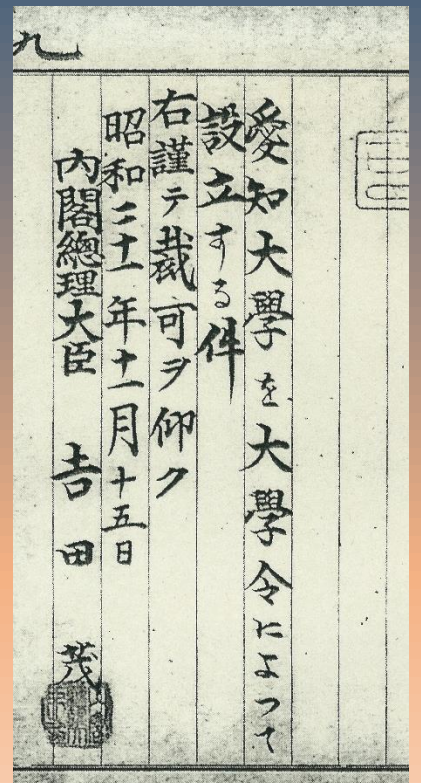 愛知大學を大學令によつて
設立する件
右謹テ裁可ヲ仰ク
昭和二十一年十一月十五日
內閣總理大臣 吉田 茂
九